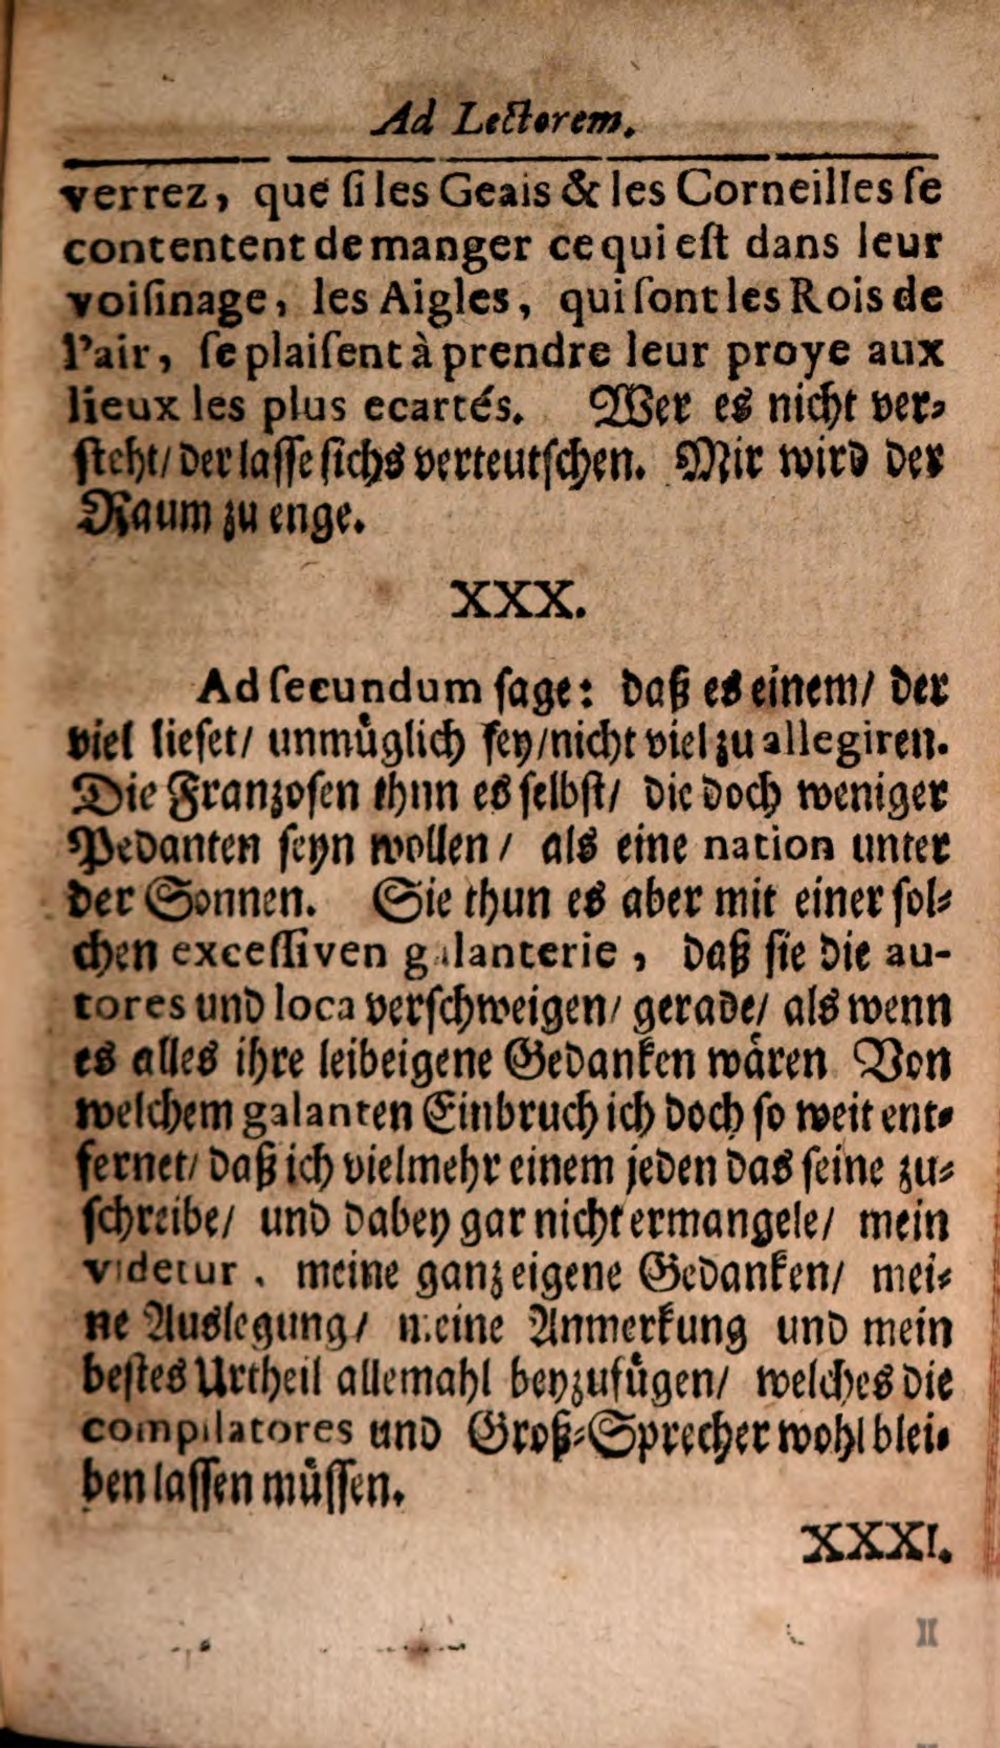 Ad Lectorem.
verrez, que ſi les Geais & les Corneilles ſe
contentent de manger ce qui eſt dans leur
voiſinage, les Aigles, qui ſont les Rois de
l'air, ſe plaiſent à prendre leur proye aux
lieux les plus ecartés. Wer es nicht ver-
ſteht/ der laſſe ſichs verteutſchen. Mir wird der
Raum zu enge.
XXX.
Ad ſecundum ſage: daß es einem/ der
viel lieſet/ unmüglich ſey/ nicht viel zu allegiren.
Die Franzoſen thun es ſelbſt/ die doch weniger
Pedanten ſeyn wollen/ als eine nation unter
der Sonnen. Sie thun es aber mit einer ſol-
chen exceſſiven galanterie, daß ſie die au-
tores und loca verſchweigen/ gerade/ als wenn
es alles ihre leibeigene Gedanken wären Von
welchem galanten Einbruch ich doch ſo weit ent-
fernet/ daß ich vielmehr einem jeden das ſeine zu-
ſchreibe/ und dabey gar nicht ermangele/ mein
videtur, meine ganz eigene Gedanken/ mei-
ne Auslegung/ meine Anmerkung und mein
beſtes Urtheil allemahl beyzufügen/ welches die
compilatores und Groß-Sprecher wohl blei-
ben laſſen müſſen.
XXXI.